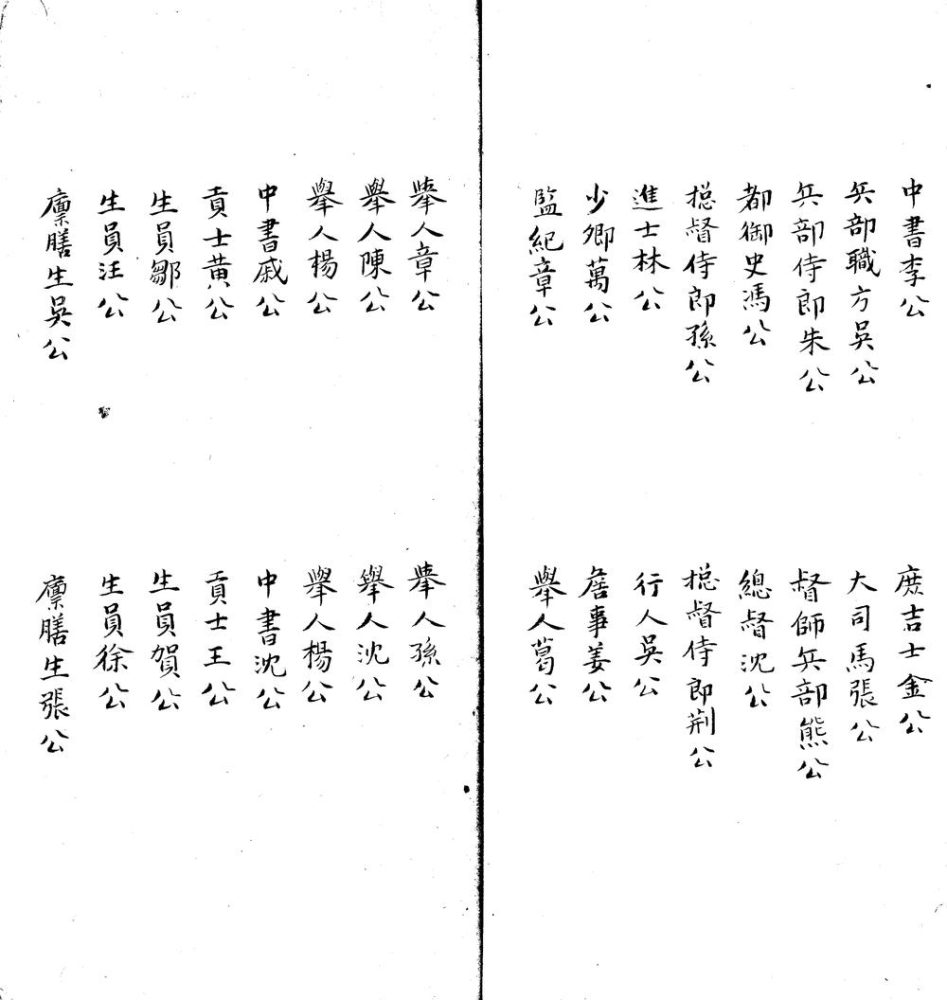 中書李公 庶吉士金公
兵部職方吳公 大司馬張公
兵部侍郎朱公 督師兵部熊公
都御史馮公 總督沈公
捴督侍郎孫公 捴督侍郎荆公
進士林公 行人吳公
少卿萬公 詹事姜公
監紀章公 舉人葛公
舉人章公 舉人孫公
舉人陳公 舉人沈公
舉人楊公 舉人楊公
中書戚公 中書沈公
貢士黃公 貢士王公
生員鄒公 生員賀公
生員汪公 生員徐公
廩膳生吳公 廩膳生張公